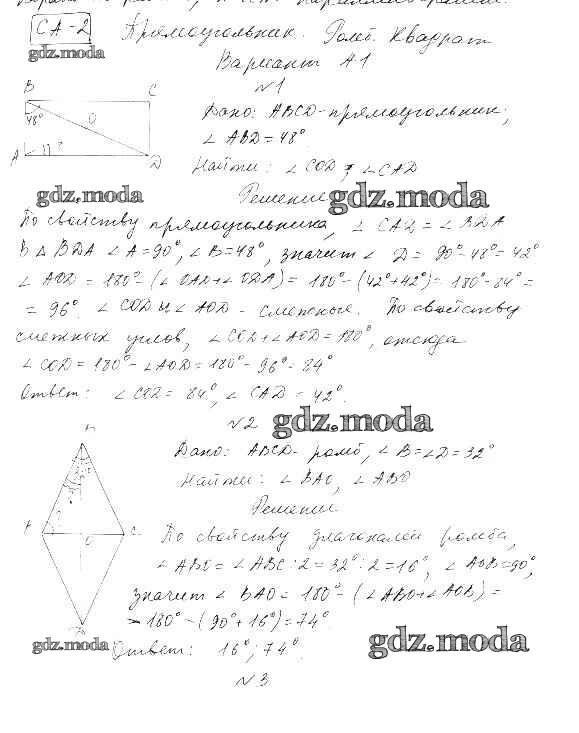 СА-2
Прямоугольник. Ромб. Квадрат
gdz.moda
Вариант А1
№1
B C
48° O
A ? D
Дано: ABCD-прямоугольник,
∠ ABD = 48°
Найти: ∠ COD и ∠ CAD
gdz.moda Решение gdz.moda
По свойству прямоугольника, ∠ CAD = ∠ BDA
В △ BDA ∠ A = 90°, ∠ B = 48°, значит ∠ D = 90° - 48° = 42°
∠ AOD = 180° - (∠ OAD + ∠ ODA) = 180° - (42° + 42°) = 180° - 84° =
= 96°. ∠ COD и ∠ AOD - смежные. По свойству
смежных углов, ∠ COD + ∠ AOD = 180°, отсюда
∠ COD = 180° - ∠ AOD = 180° - 96° = 84°
Ответ: ∠ COD = 84°, ∠ CAD = 42°.
№2 gdz.moda
Дано: ABCD - ромб, ∠ B = ∠ D = 32°
Найти: ∠ BAO, ∠ ABO
Решение
По свойству диагоналей ромба,
∠ ABO = ∠ ABC : 2 = 32° : 2 = 16°, ∠ AOB = 90°,
значит ∠ BAO = 180° - (∠ ABO + ∠ AOB) =
= 180° - (90° + 16°) = 74°
gdz.moda Ответ: 16°; 74°. gdz.moda
№3